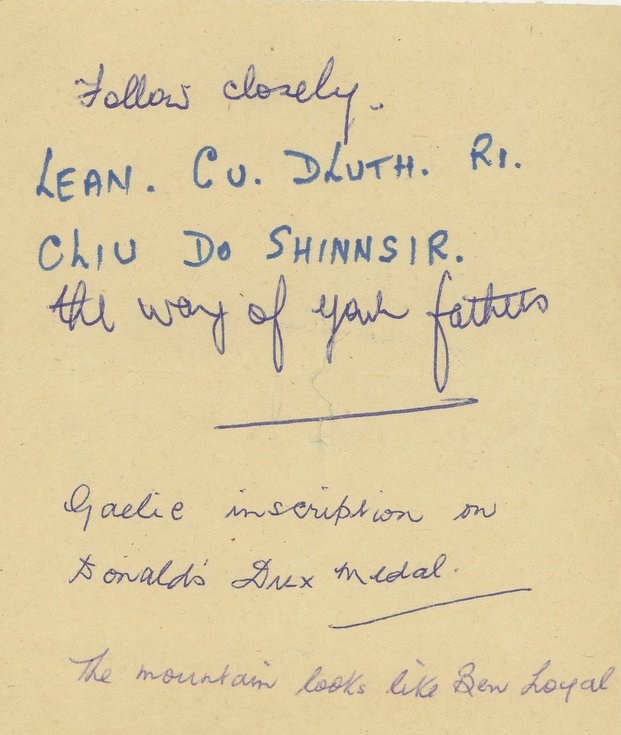 Follow closely.
LEAN. CU. DLUTH. RI.
CLIU DO SHINNSIR.
the way of your fathers
Gaelic inscription on
Donald's Dux Medal.
The mountain looks like Ben Loyal